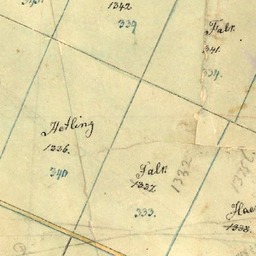 1342
339
Falr.
341.
334.
Hetling
1336.
340
Falr.
1337.
1332
333.
1338.